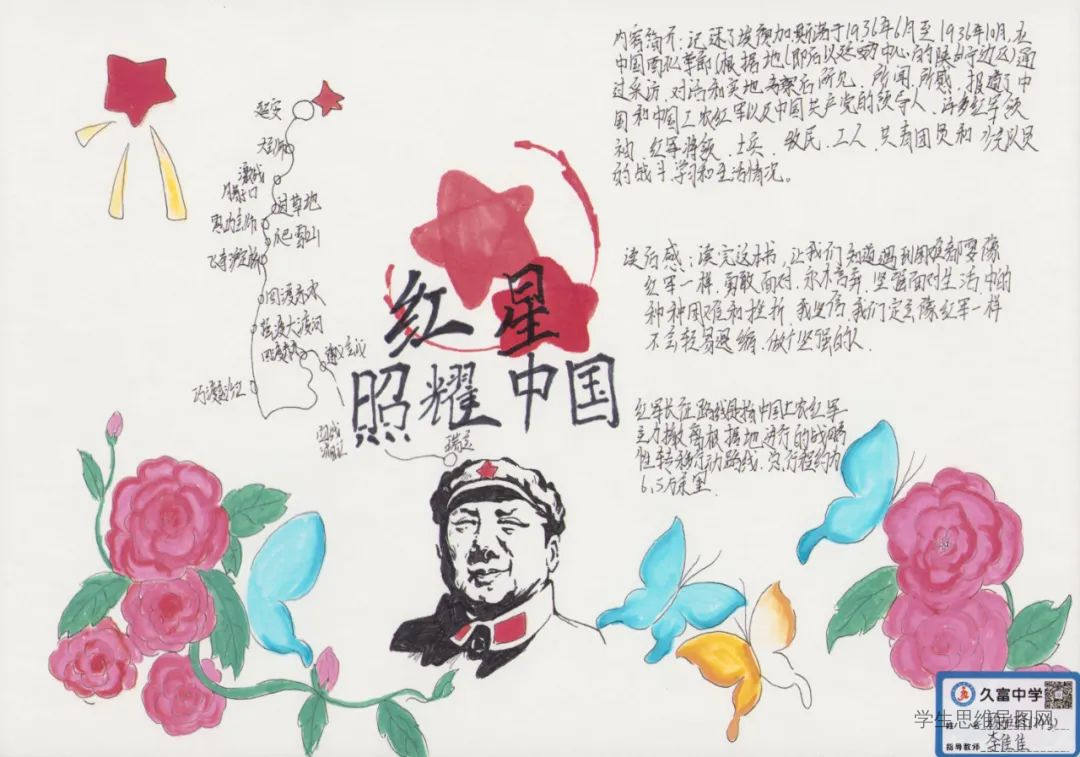 内容简介:记述了埃德加斯诺于1936年6月至1936年10月,在
中国西北革命根据地(即后以延安为中心的陕甘宁边区)通
过采访、对话和实地考察后所见、所闻、所感,报道了中
国和中国工农红军以及中国共产党的领导人、许多红军领
袖、红军将领、士兵、牧民、工人、共青团员和少先队员
的战斗,学习和生活情况。
延安
过草地
爬雪山
四渡赤水
强渡大渡河
巧渡金沙江
遵义会议
瑞金
红星
照耀中国
读后感:读完这本书,让我们知道遇到困难都要像
红军一样,勇敢面对,永不言弃,坚强面对生活中的
种种困难和挫折,我坚信,我们定会像红军一样
不会轻易退缩,做个坚强的人.
红军长征路线是指中国工农红军
主力撤离根据地进行的战略
性转移行动路线,总行程约为
6.5万余里.
久富中学
学生思维导图网
指导教师